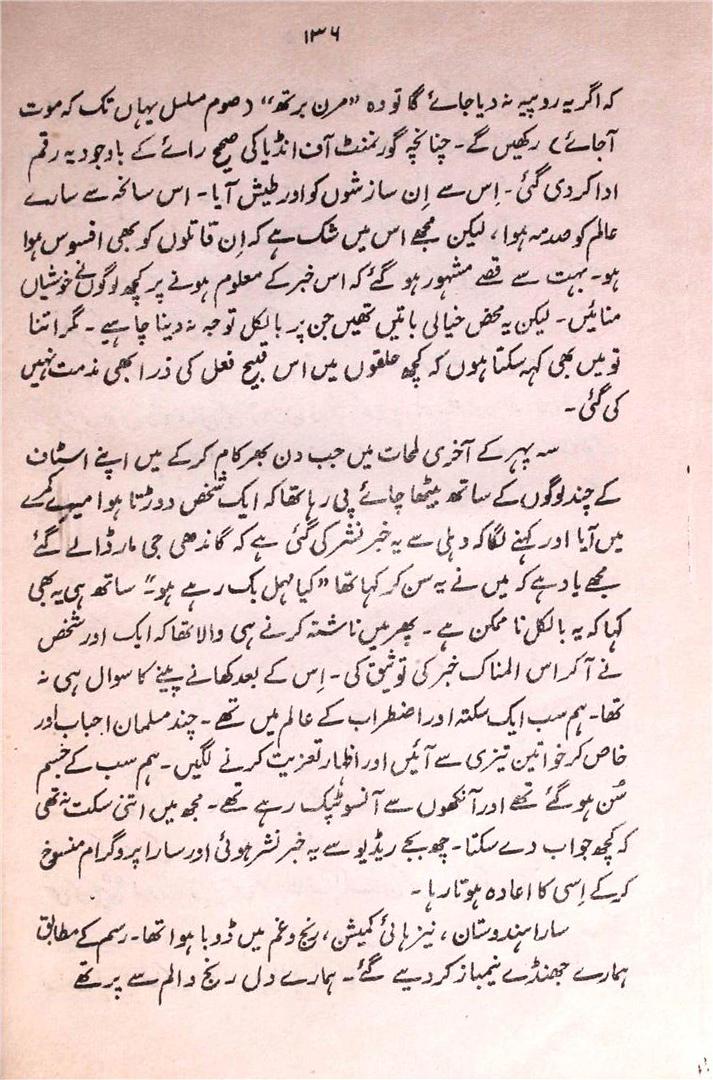 ۱۳۶
کہ اگر یہ روپیہ نہ دیا جائے گا تو وہ ”مرن برتھ“ (صوم مسلسل یہاں تک کہ موت
آجائے) رکھیں گے۔ چنانچہ گورنمنٹ آف انڈیا کی صحیح رائے کے باوجود یہ رقم
ادا کردی گئی۔ اِس سے اِن سازشوں کو اور طیش آیا۔ اس سانحہ سے سارے
عالم کو صدمہ ہوا، لیکن مجھے اس میں شک ہے کہ اِن قاتلوں کو بھی افسوس ہوا
ہو۔ بہت سے قصے مشہور ہو گئے کہ اس خبر کے معلوم ہونے پر کچھ لوگوں نے خوشیاں
منائیں۔ لیکن یہ محض خیالی باتیں تھیں جن پر بالکل توجہ نہ دینا چاہیے۔ مگر اتنا
تو میں بھی کہہ سکتا ہوں کہ کچھ حلقوں میں اس قبیح فعل کی ذرا بھی مذمت نہیں
کی گئی۔
سہ پہر کے آخری لمحات میں جب دن بھر کام کرکے میں اپنے اسٹاف
کے چند لوگوں کے ساتھ بیٹھا چائے پی رہا تھا کہ ایک شخص دوڑتا ہوا میرے کمرے
میں آیا اور کہنے لگا کہ دہلی سے یہ خبر نشر کی گئی ہے کہ گاندھی جی مار ڈالے گئے
مجھے یاد ہے کہ میں نے یہ سن کر کہا تھا ”کیا مہمل بک رہے ہو۔“ ساتھ ہی یہ بھی
کہا کہ یہ بالکل ناممکن ہے۔ پھر میں ناشتہ کرنے ہی والا تھا کہ ایک اور شخص
نے آکر اس المناک خبر کی توثیق کی۔ اِس کے بعد کھانے پینے کا سوال ہی نہ
تھا۔ ہم سب ایک سکتہ اور اضطراب کے عالم میں تھے۔ چند مسلمان احباب اور
خاص کر خواتین تیزی سے آئیں اور اظہار تعزیت کرنے لگیں۔ ہم سب کے جسم
سُن ہو گئے تھے اور آنکھوں سے آنسو ٹپک رہے تھے۔ مجھ میں اتنی سکت نہ تھی
کہ کچھ جواب دے سکتا۔ چھ بجے ریڈیو سے یہ خبر نشر ہوئی اور سارا پروگرام منسوخ
کرکے اِسی کا اعادہ ہوتا رہا۔
سارا ہندوستان، نیز ہائی کمیشن، رنج و غم میں ڈوبا ہوا تھا۔ رسم کے مطابق
ہمارے جھنڈے نیمباز کردیے گئے۔ ہمارے دل رنج و الم سے پر تھے